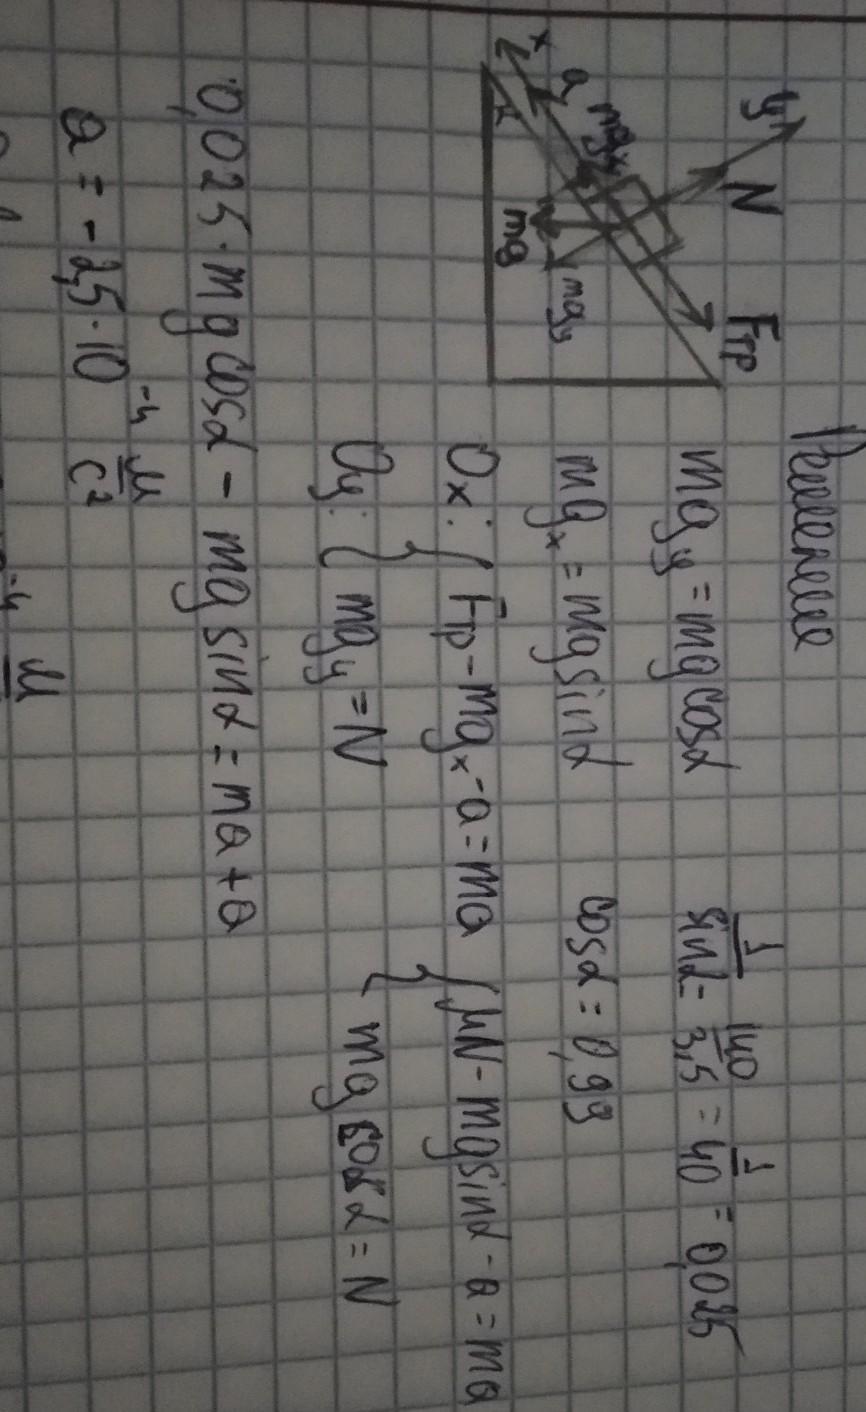 Решение
y
N
Fтр
x
a
mgx
α
mg
mgy
mgy = mg cosα
mgx = mg sinα
1/sinα = 140/3,5 = 1/40 = 0,025
cosα = 0,99
Ox: { Fтр - mgx - a = ma
Oy: { mgy = N
{ μN - mg sinα - a = ma
{ mg cosα = N
0,025 · mg cosα - mg sinα = ma + a
a = -2,5 · 10⁻⁴ м/с²
⁻⁴ м